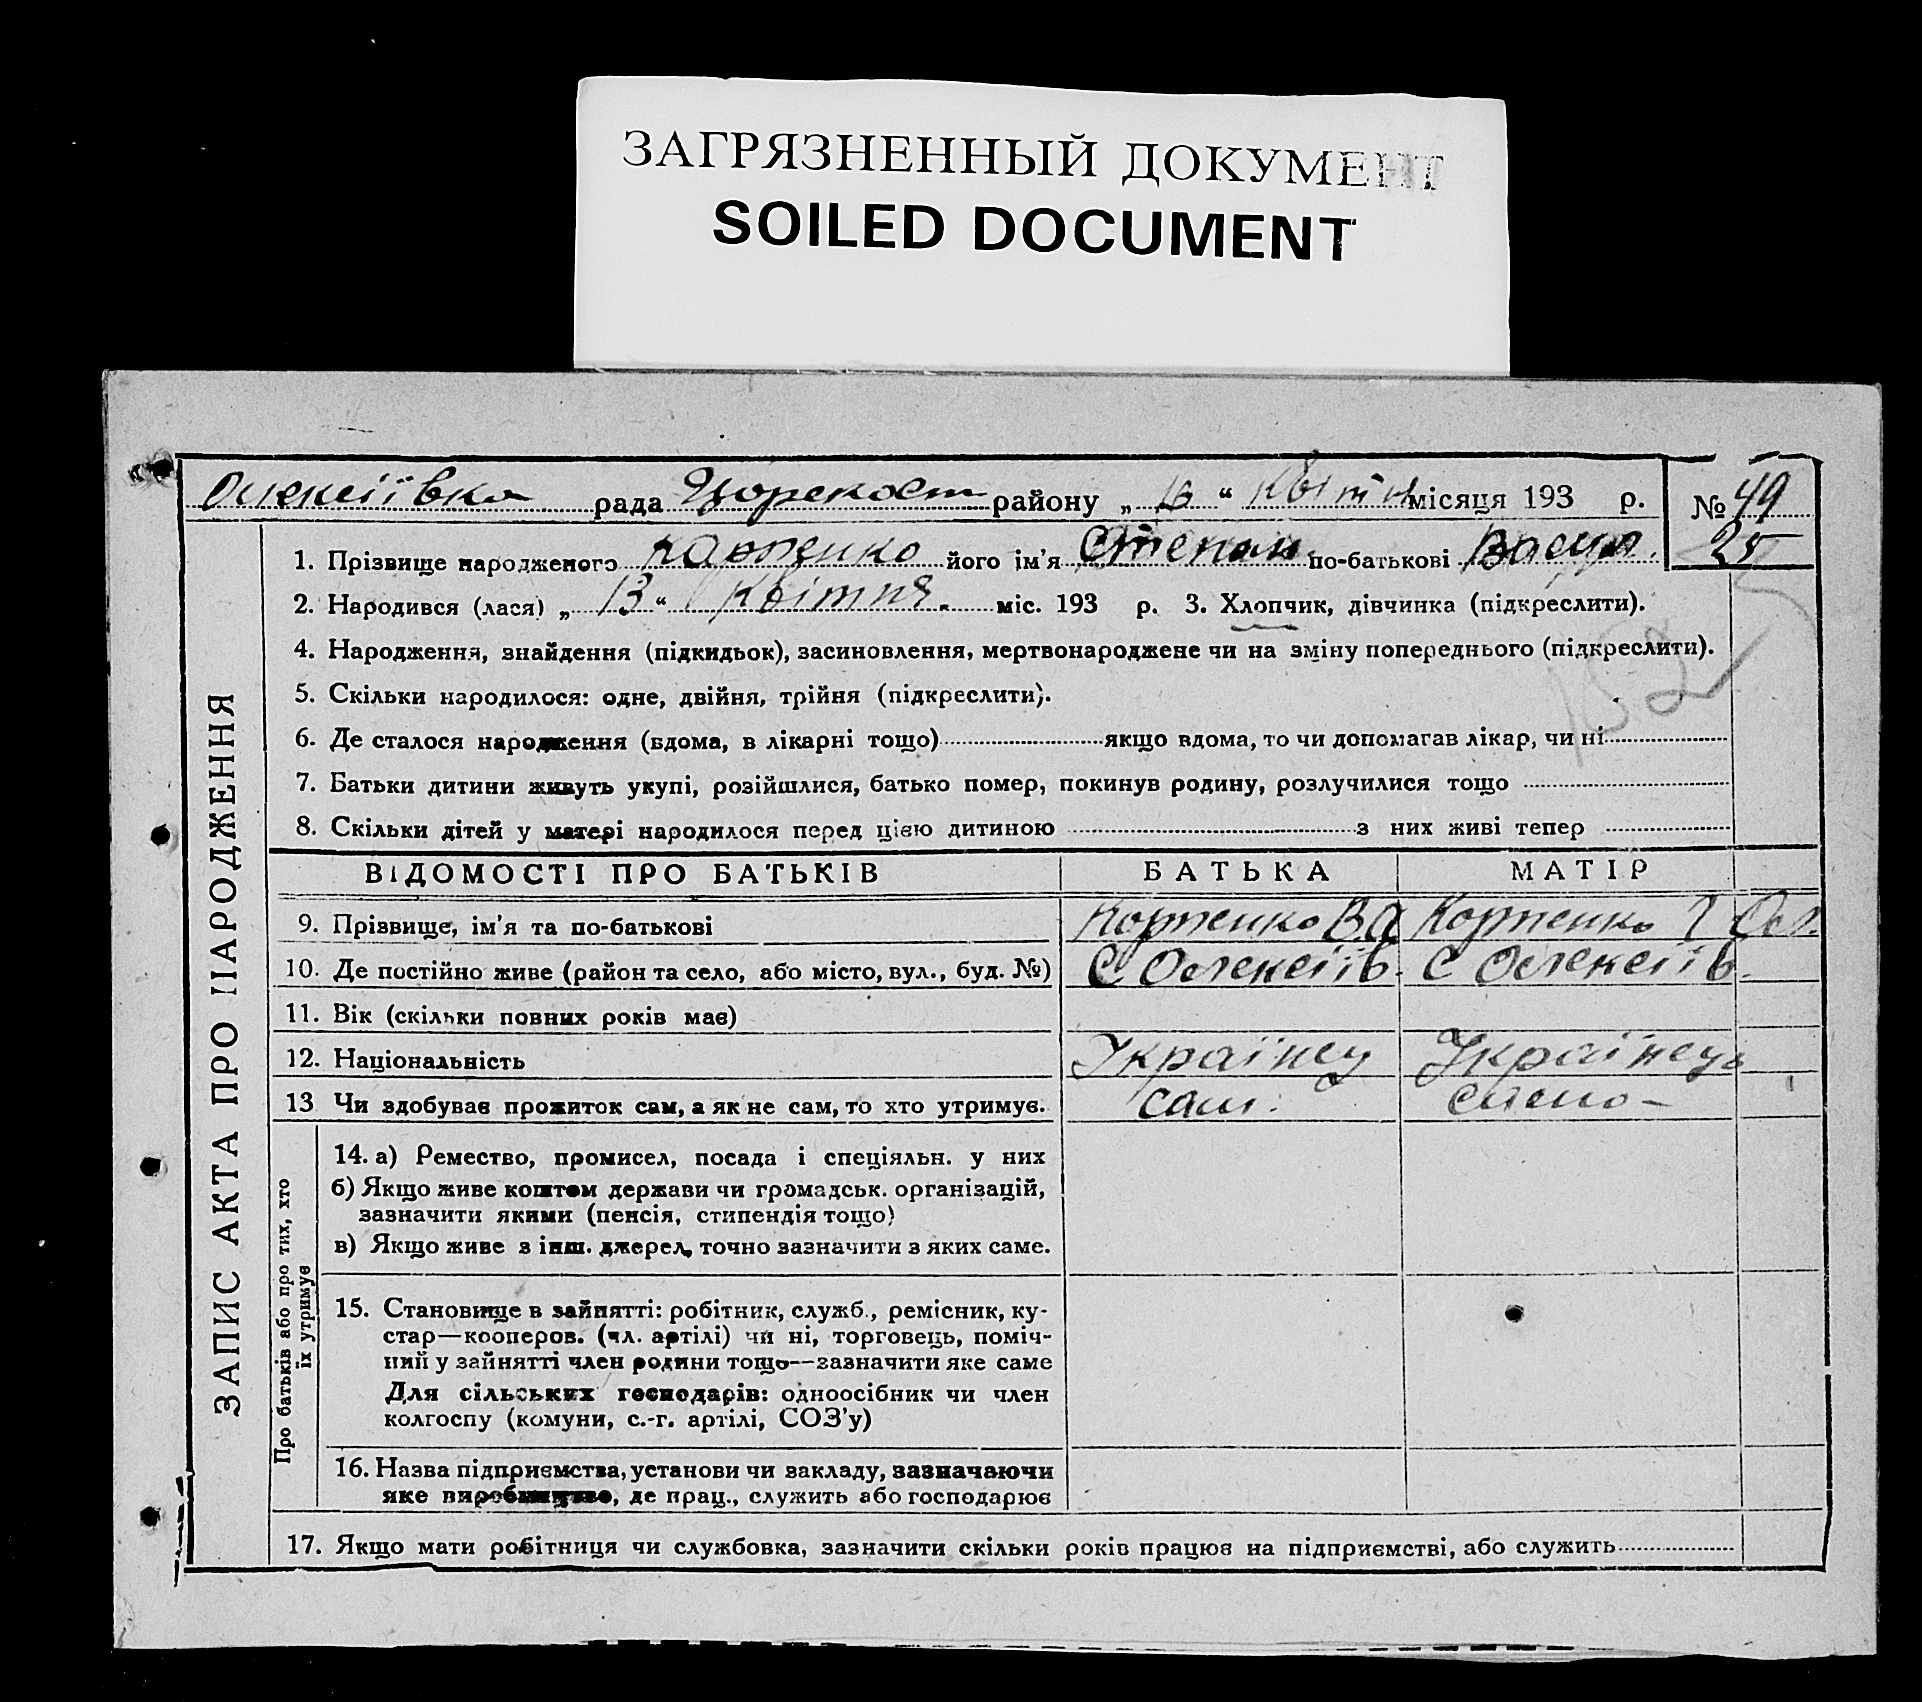 ЗАГРЯЗНЕННЫЙ ДОКУМЕНТ
SOILED DOCUMENT
Олексіївка рада район у „ 16 “ Квітня місяця 193 р. № 49
25
1. Прізвище народженого його ім'я Степан по-батькові Васил.
2. Народився (лася) „ 13 “ Квітня. міс. 193 р. 3. Хлопчик, дівчинка (підкреслити).
4. Народження, знайдення (підкидьок), засиновлення, мертвонароджене чи на зміну попереднього (підкреслити).
5. Скільки народилося: одне, двійня, трійня (підкреслити).
6. Де сталося народження (вдома, в лікарні тощо) якщо вдома, то чи допомагав лікар, чи ні
7. Батьки дитини живуть укупі, розійшлися, батько помер, покинув родину, розлучилися тощо
8. Скільки дітей у матері народилося перед цією дитиною з них живі тепер
ВІДОМОСТІ ПРО БАТЬКІВ БАТЬКА МАТІР
9. Прізвище, ім'я та по-батькові
10. Де постійно живе (район та село, або місто, вул., буд. №) С Олексіїв. С Олексіїв.
11. Вік (скільки повних років має)
12. Національність Українец Українець
13 Чи здобував прожиток сам, а як не сам, то хто утримує. сам.
14. а) Ремество, промисел, посада і спеціяльн. у них
б) Якщо живе коштом держави чи громадськ. організацій,
зазначити якими (пенсія, стипендія тощо)
в) Якщо живе з інш. джерел, точно зазначити з яких саме.
15. Становище в зайнятті: робітник, служб., ремісник, ку-
стар—кооперов. (чл. артілі) чи ні, торговець, поміч-
ний у зайнятті член родини тощо—зазначити яке саме
Для сільських господарів: одноосібник чи член
колгоспу (комуни, с.-г. артілі, СОЗ'у)
16. Назва підприємства, установи чи закладу, зазначаючи
яке виробництво, де прац., служить або господарює
17. Якщо мати робітниця чи службовка, зазначити скільки років працює на підприємстві, або служить
ЗАПИС АКТА ПРО НАРОДЖЕННЯ
Про батьків або про тих, хто
їх утримує